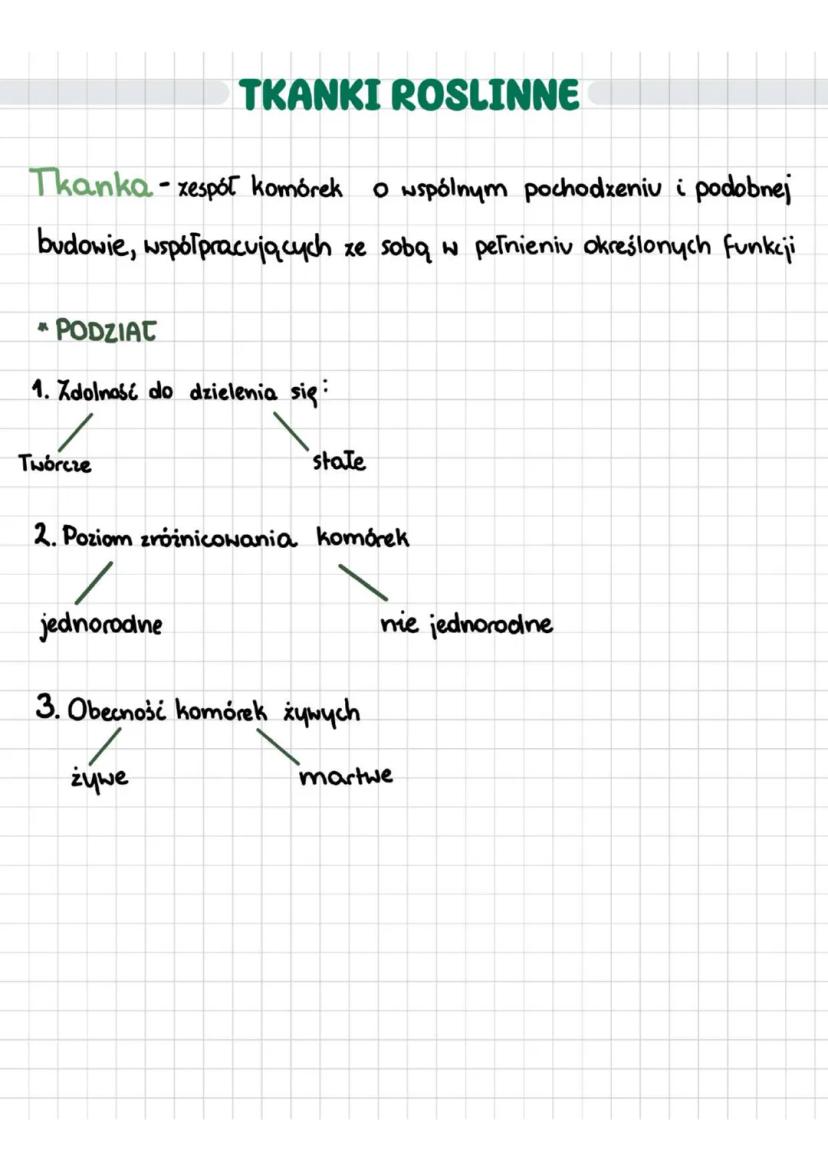 TKANKI ROSLINNE
Tkanka - zespół komórek o wspólnym pochodzeniu i podobnej
budowie, współpracujących ze sobą w pełnieniu określonych funkcji
* PODZIAŁ
1. Zdolność do dzielenia się:
Twórcze stałe
2. Poziom zróżnicowania komórek
jednorodne nie jednorodne
3. Obecność komórek żywych
żywe martwe